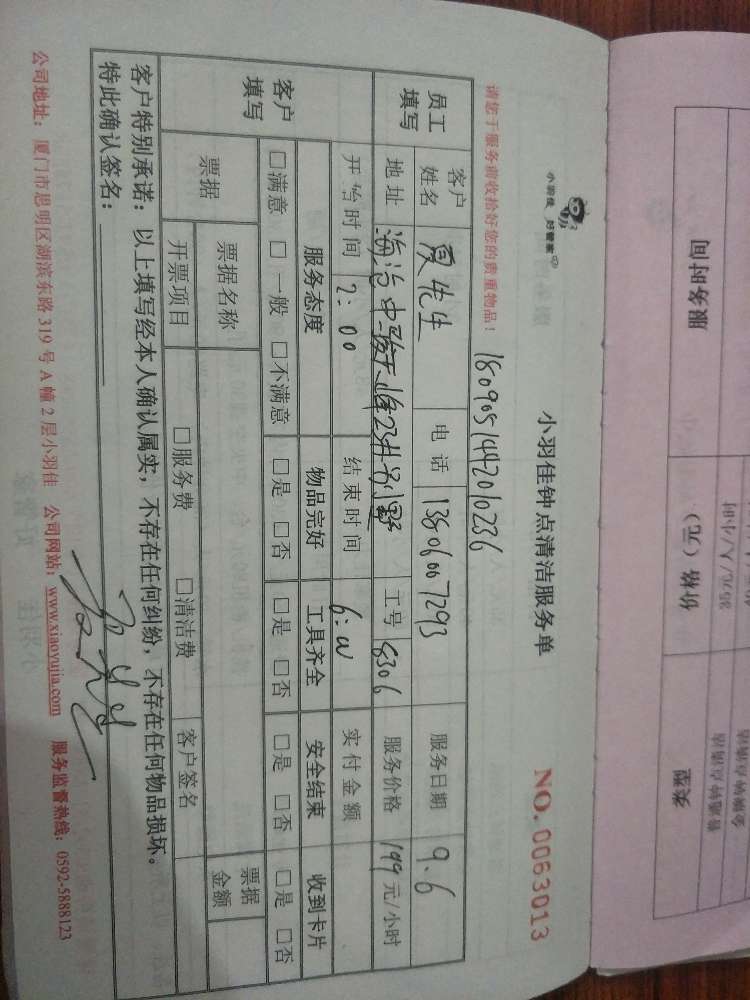 小羽佳 好管家
小羽佳钟点清洁服务单
NO. 0063013
请您于服务前收拾好您的贵重物品！
1809051442010236
员工填写
客户姓名 夏先生 电话 13806007293 服务日期 9.6
地址 工号 8306 服务价格 149元/小时
开始时间 2:00 结束时间 6:00 实付金额
客户填写
服务态度 物品完好 工具齐全 安全结束 收到卡片
□满意 □一般 □不满意 □是 □否 □是 □否 □是 □否 □是 □否
票据 票据名称 票据金额
开票项目 □服务费 □清洁费 客户签名
客户特别承诺：以上填写经本人确认属实，不存在任何纠纷，不存在任何物品损坏。
特此确认签名：
公司地址：厦门市思明区湖滨东路 319 号 A 幢 2 层小羽佳 公司网站：www.xiaoyujia.com 服务监督热线：0592-5888123
服务时间 价格（元） 类型